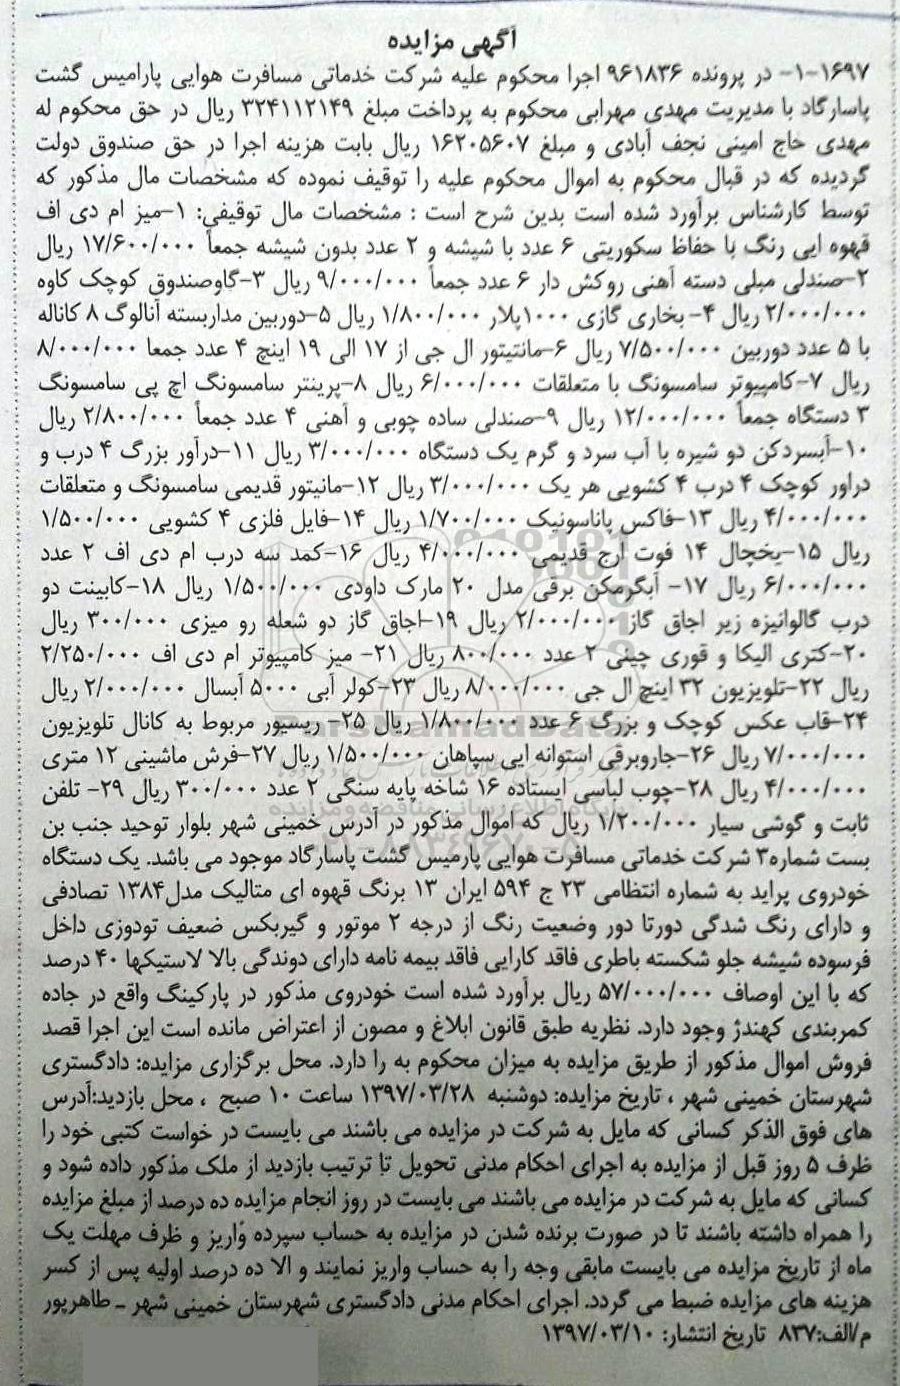 آگهی مزایده
۱-۱۶۹۷- در پرونده ۹۶۱۸۳۶ اجرا محکوم علیه شرکت خدماتی مسافرت هوایی پارامیس گشت
پاسارگاد با مدیریت مهدی مهرابی محکوم به پرداخت مبلغ ۳۲۴۱۱۲۱۴۹ ریال در حق محکوم له
مهدی حاج امینی نجف آبادی و مبلغ ۱۶۲۰۵۶۰۷ ریال بابت هزینه اجرا در حق صندوق دولت
گردیده که در قبال محکوم به اموال محکوم علیه را توقیف نموده که مشخصات مال مذکور که
توسط کارشناس برآورد شده است بدین شرح است : مشخصات مال توقیفی: ۱-میز ام دی اف
قهوه ایی رنگ با حفاظ سکوریتی ۶ عدد با شیشه و ۲ عدد بدون شیشه جمعاً ۱۷/۶۰۰/۰۰۰ ریال
۲-صندلی مبلی دسته آهنی روکش دار ۶ عدد جمعاً ۹/۰۰۰/۰۰۰ ریال ۳-گاوصندوق کوچک کاوه
۲/۰۰۰/۰۰۰ ریال ۴- بخاری گازی ۱۰۰۰پلار ۱/۸۰۰/۰۰۰ ریال ۵-دوربین مداربسته آنالوگ ۸ کاناله
با ۵ عدد دوربین ۷/۵۰۰/۰۰۰ ریال ۶-مانتیتور ال جی از ۱۷ الی ۱۹ اینچ ۴ عدد جمعا ۸/۰۰۰/۰۰۰
ریال ۷-کامپیوتر سامسونگ با متعلقات ۶/۰۰۰/۰۰۰ ریال ۸-پرینتر سامسونگ اچ پی سامسونگ
۳ دستگاه جمعاً ۱۲/۰۰۰/۰۰۰ ریال ۹-صندلی ساده چوبی و آهنی ۴ عدد جمعاً ۲/۸۰۰/۰۰۰ ریال
۱۰-آبسردکن دو شیره با آب سرد و گرم یک دستگاه ۳/۰۰۰/۰۰۰ ریال ۱۱-درآور بزرگ ۴ درب و
دراور کوچک ۴ درب ۴ کشویی هر یک ۳/۰۰۰/۰۰۰ ریال ۱۲-مانیتور قدیمی سامسونگ و متعلقات
۴/۰۰۰/۰۰۰ ریال ۱۳-فاکس پاناسونیک ۱/۷۰۰/۰۰۰ ریال ۱۴-فایل فلزی ۴ کشویی ۱/۵۰۰/۰۰۰
ریال ۱۵-یخچال ۱۴ فوت ارج قدیمی ۴/۰۰۰/۰۰۰ ریال ۱۶-کمد سه درب ام دی اف ۲ عدد
۶/۰۰۰/۰۰۰ ریال ۱۷- آبگرمکن برقی مدل ۲۰ مارک داودی ۱/۵۰۰/۰۰۰ ریال ۱۸-کابینت دو
درب گالوانیزه زیر اجاق گاز ۲/۰۰۰/۰۰۰ ریال ۱۹-اجاق گاز دو شعله رو میزی ۳۰۰/۰۰۰ ریال
۲۰-کتری الیکا و قوری چینی ۲ عدد ۸۰۰/۰۰۰ ریال ۲۱- میز کامپیوتر ام دی اف ۲/۲۵۰/۰۰۰
ریال ۲۲-تلویزیون ۳۲ اینچ ال جی ۸/۰۰۰/۰۰۰ ریال ۲۳-کولر آبی ۵۰۰۰ آبسال ۲/۰۰۰/۰۰۰ ریال
۲۴-قاب عکس کوچک و بزرگ ۶ عدد ۱/۸۰۰/۰۰۰ ریال ۲۵- ریسیور مربوط به کانال تلویزیون
۷/۰۰۰/۰۰۰ ریال ۲۶-جاروبرقی استوانه ایی سپاهان ۱/۵۰۰/۰۰۰ ریال ۲۷-فرش ماشینی ۱۲ متری
۴/۰۰۰/۰۰۰ ریال ۲۸-چوب لباسی ایستاده ۱۶ شاخه پایه سنگی ۲ عدد ۳۰۰/۰۰۰ ریال ۲۹- تلفن
ثابت و گوشی سیار ۱/۲۰۰/۰۰۰ ریال که اموال مذکور در آدرس خمینی شهر بلوار توحید جنب بن
بست شماره۳ شرکت خدماتی مسافرت هوایی پارمیس گشت پاسارگاد موجود می باشد. یک دستگاه
خودروی پراید به شماره انتظامی ۲۳ ج ۵۹۴ ایران ۱۳ برنگ قهوه ای متالیک مدل۱۳۸۴ تصادفی
و دارای رنگ شدگی دورتا دور وضعیت رنگ از درجه ۲ موتور و گیربکس ضعیف تودوزی داخل
فرسوده شیشه جلو شکسته باطری فاقد کارایی فاقد بیمه نامه دارای دوندگی بالا لاستیکها ۴۰ درصد
که با این اوصاف ۵۷/۰۰۰/۰۰۰ ریال برآورد شده است خودروی مذکور در پارکینگ واقع در جاده
کمربندی کهندژ وجود دارد. نظریه طبق قانون ابلاغ و مصون از اعتراض مانده است این اجرا قصد
فروش اموال مذکور از طریق مزایده به میزان محکوم به را دارد. محل برگزاری مزایده: دادگستری
شهرستان خمینی شهر ، تاریخ مزایده: دوشنبه ۱۳۹۷/۰۳/۲۸ ساعت ۱۰ صبح ، محل بازدید:آدرس
های فوق الذکر کسانی که مایل به شرکت در مزایده می باشند می بایست در خواست کتبی خود را
ظرف ۵ روز قبل از مزایده به اجرای احکام مدنی تحویل تا ترتیب بازدید از ملک مذکور داده شود و
کسانی که مایل به شرکت در مزایده می باشند می بایست در روز انجام مزایده ده درصد از مبلغ مزایده
را همراه داشته باشند تا در صورت برنده شدن در مزایده به حساب سپرده واریز و ظرف مهلت یک
ماه از تاریخ مزایده می بایست مابقی وجه را به حساب واریز نمایند و الا ده درصد اولیه پس از کسر
هزینه های مزایده ضبط می گردد. اجرای احکام مدنی دادگستری شهرستان خمینی شهر - طاهرپور
م/الف:۸۳۷ تاریخ انتشار: ۱۳۹۷/۰۳/۱۰